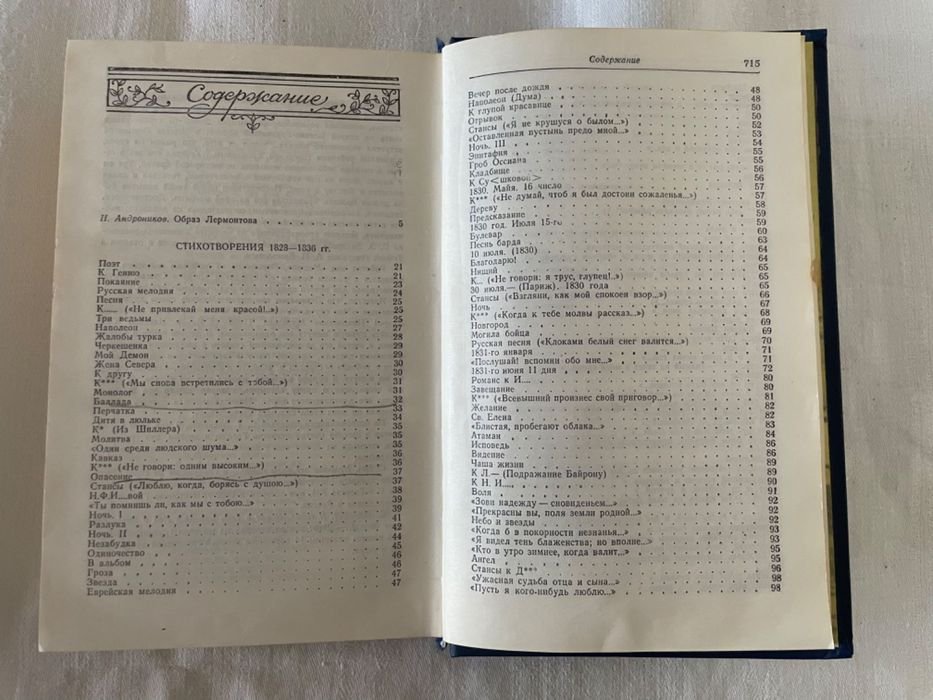 Содержание
И. Андроников. Образ Лермонтова . . . . . . . . . . 5
СТИХОТВОРЕНИЯ 1828—1836 гг.
Поэт . . . . . 21
К Гению . . . . . 21
Покаяние . . . . . 23
Русская мелодия . . . . . 24
Песня . . . . . 25
К...... («Не привлекай меня красой!..») . . . . . 25
Три ведьмы . . . . . 25
Наполеон . . . . . 27
Жалобы турка . . . . . 28
Черкешенка . . . . . 29
Мой Демон . . . . . 29
Жена Севера . . . . . 30
К другу . . . . . 30
К*** («Мы снова встретились с тобой...») . . . . . 31
Монолог . . . . . 31
Баллада . . . . . 32
Перчатка . . . . . 33
Дитя в люльке . . . . . 34
К* (Из Шиллера) . . . . . 35
Молитва . . . . . 35
«Один среди людского шума...» . . . . . 35
Кавказ . . . . . 36
К*** («Не говори: одним высоким...») . . . . . 36
Опасение . . . . . 37
Стансы («Люблю, когда, борясь с душою...») . . . . . 37
Н.Ф.И....вой . . . . . 38
«Ты помнишь ли, как мы с тобою...» . . . . . 39
Ночь. I . . . . . 39
Разлука . . . . . 41
Ночь. II . . . . . 42
Незабудка . . . . . 44
Одиночество . . . . . 45
В альбом . . . . . 46
Гроза . . . . . 46
Звезда . . . . . 47
Еврейская мелодия . . . . . 47
Содержание 715
Вечер после дождя . . . . . 48
Наполеон (Дума) . . . . . 48
К глупой красавице . . . . . 50
Отрывок . . . . . 50
Стансы («Я не крушуся о былом...») . . . . . 52
«Оставленная пустынь предо мной...» . . . . . 53
Ночь. III . . . . . 54
Эпитафия . . . . . 55
Гроб Оссиана . . . . . 55
Кладбище . . . . . 56
К Су<шковой> . . . . . 56
1830. Майя. 16 число . . . . . 57
К*** («Не думай, чтоб я был достоин сожаленья..») . . . . . 57
Дереву . . . . . 58
Предсказание . . . . . 59
1830 год. Июля 15-го . . . . . 59
Булевар . . . . . 60
Песнь барда . . . . . 63
10 июля. (1830) . . . . . 64
Благодарю! . . . . . 64
Нищий . . . . . 65
К... («Не говори: я трус, глупец!..») . . . . . 65
30 июля.— (Париж). 1830 года . . . . . 65
Стансы («Взгляни, как мой спокоен взор...») . . . . . 66
Ночь . . . . . 67
К*** («Когда к тебе молвы рассказ...») . . . . . 68
Новгород . . . . . 69
Могила бойца . . . . . 69
Русская песня («Клоками белый снег валится...») . . . . . 70
1831-го января . . . . . 71
«Послушай! вспомни обо мне...» . . . . . 71
1831-го июня 11 дня . . . . . 72
Романс к И.... . . . . . 80
Завещание . . . . . 80
К*** («Всевышний произнес свой приговор...») . . . . . 81
Желание . . . . . 82
Св. Елена . . . . . 82
«Блистая, пробегают облака...» . . . . . 83
Атаман . . . . . 84
Исповедь . . . . . 86
Видение . . . . . 86
Чаша жизни . . . . . 89
К Л.— (Подражание Байрону) . . . . . 89
К Н. И..... . . . . . 90
Воля . . . . . 91
«Зови надежду — сновиденьем...» . . . . . 92
«Прекрасны вы, поля земли родной...» . . . . . 92
Небо и звезды . . . . . 92
«Когда б в покорности незнанья...» . . . . . 93
«Я видел тень блаженства; но вполне...» . . . . . 93
«Кто в утро зимнее, когда валит...» . . . . . 95
Ангел . . . . . 95
Стансы к Д*** . . . . . 96
«Ужасная судьба отца и сына...» . . . . . 98
«Пусть я кого-нибудь люблю...» . . . . . 98